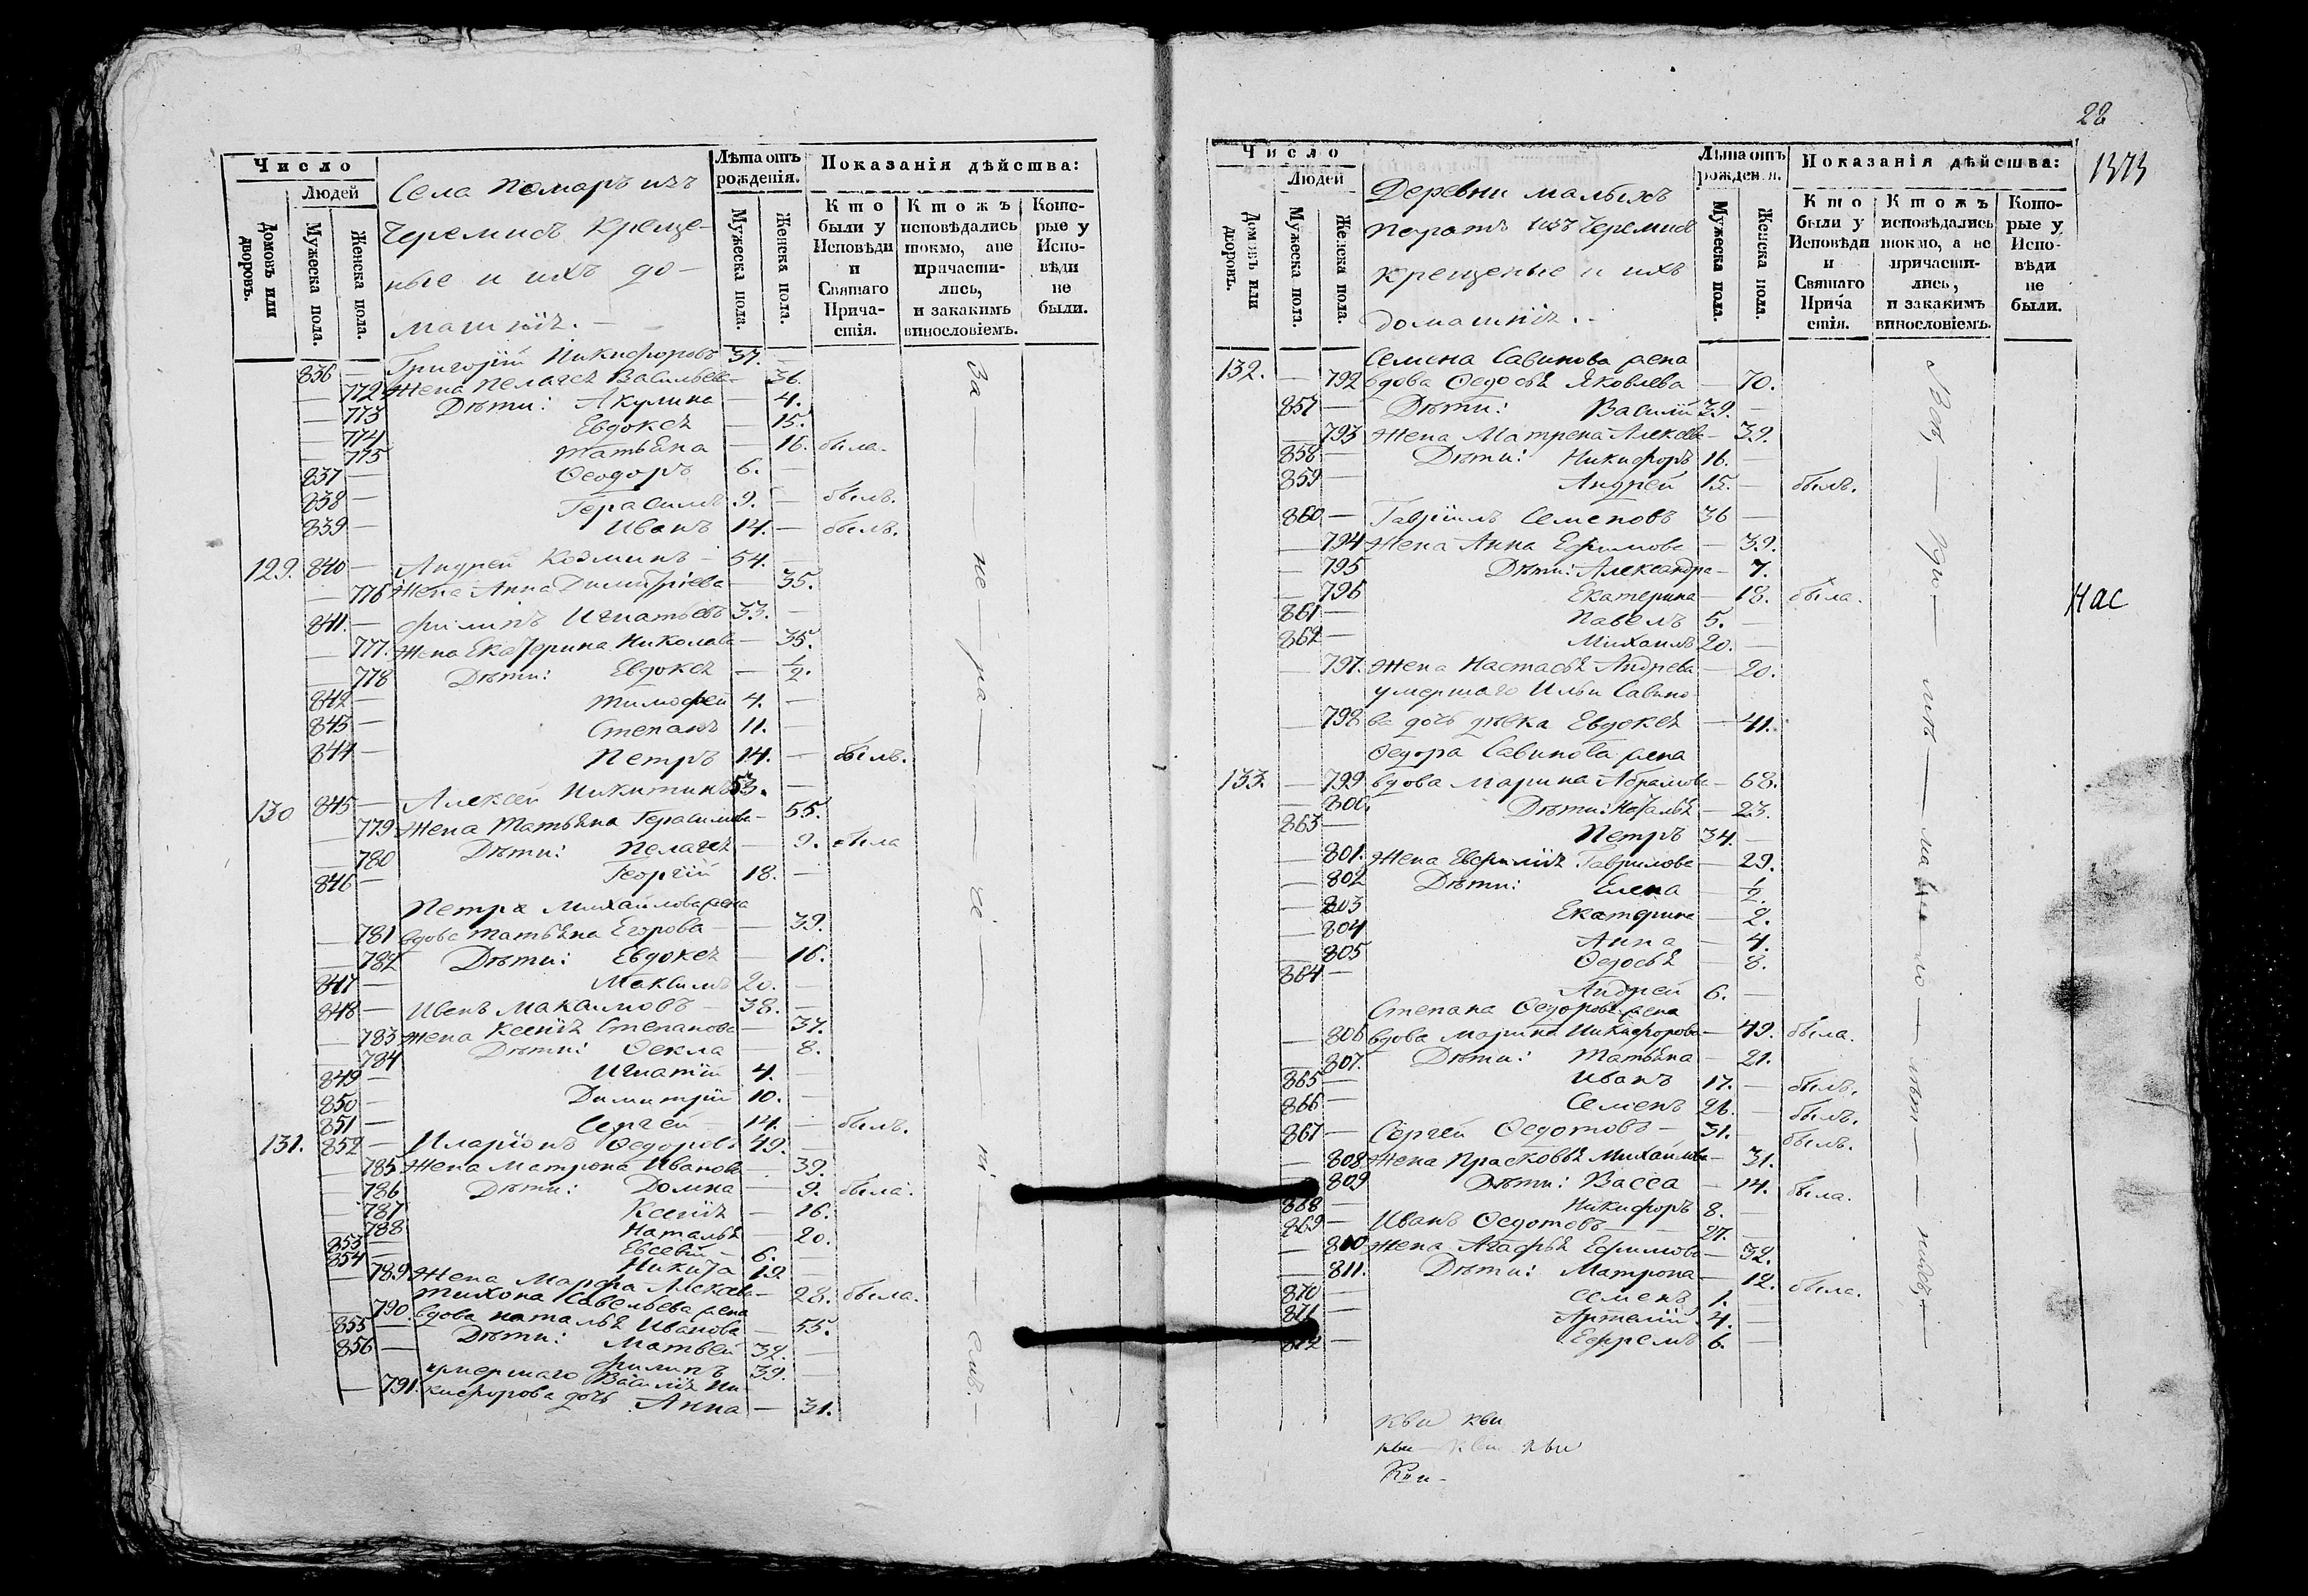 Число
Людей
Домовъ или дворовъ.
Мужеска пола.
Женска пола.
Села Помаръ изъ
Черемисъ креще-
ные и ихъ до-
машніе. -
Лѣта отъ рожденія.
Мужеска пола.
Женска пола.
Показанія дѣйства:
Кто были у Исповѣди и Святаго Прича-стія.
Ктожъ исповѣдались токмо, а не причасти-лись, и закакимъ винословіемъ.
Кото-рые у Испо-вѣди не были.
836 — Григорій Никифоровъ 37. —
— 772 Жена Пелагея Васильева — 36.
— 773 Дѣти: Акулина — 4.
— 774 Евдокея — 15.
— 775 Татьяна — 16. была.
837 — Ѳеодоръ 6. —
838 — Герасимъ 9. — былъ.
839 — Иванъ 14. — былъ.
129. 840 — Андрей Козминъ — 54. —
— 776 Жена Анна Димитріева — 35.
841. — Филипъ Игнатьевъ 33. —
— 777. Жена Екатерина Николаева — 35.
— 778 Дѣти: Евдокея — ½.
842 — Тимофей 4. —
843 — Степанъ 11. —
844 — Петръ 14. — былъ.
130 845 — Алексей Никитинъ 53. —
— 779 Жена Татьяна Герасимова — 55.
— 780 Дѣти: Пелагея — 9. была
846 — Георгій 18. —
Петра Михайлова жена
— 781 вдова Татьяна Егорова — 39.
— 782 Дѣти: Евдокея — 16.
847 — Максимъ 20. —
848 — Иванъ Максимовъ — 38. —
— 783 Жена Ксенія Степанова — 37.
— 784 Дѣти: Ѳекла — 8.
849 — Игнатій 4. —
850 — Димитрій 10. —
851 — Сергей — 14. — былъ.
131. 852 — Иларіонъ Ѳедоровъ 49. —
— 785 Жена Матрона Иванова — 39.
— 786 Дѣти: Домна — 9. была.
— 787 Ксенія — 16.
— 788 Наталья — 20.
853 — Евсевій — 6. —
854 — Никита 19 —
— 789 Жена Марфа Алексеева — 28. была.
Тихона Савельева жена
— 790. вдова Наталья Иванова — 55.
855 — Дѣти: Матвей 32. —
856 — Филипъ 39. —
умершаго Василія Ни-
— 791. кифорова дочь Анна — 31.
За — не — ра —
28
1373
Число
Людей
Домовъ или дворовъ.
Мужеска пола.
Женска пола.
Деревни малыхъ
Паратъ изъ Черемисъ
крещеные и ихъ
домашніе. -
Лѣта отъ рожденія.
Мужеска пола.
Женска пола.
Показанія дѣйства:
Кто были у Исповѣди и Святаго Прича стія.
Ктожъ исповѣдались токмо, а не причасти-лись, и закакимъ винословіемъ.
Кото-рые у Испо-вѣди не были.
Семена Савинова жена
132. — 792 вдова Ѳедосья Яковлева — 70.
857 — Дѣти: Василій 39. —
— 793 Жена Матрена Алексеева — 39.
858 — Дѣти: Никифоръ 16. —
859 — Андрей 15. — былъ.
860 — Гавріилъ Семеновъ 36 —
— 794 Жена Анна Ефимова — 39.
— 795 Дѣти: Александра — 7.
— 796 Екатерина — 18. была.
861 — Павелъ 5. —
862 — Михаилъ 20. —
— 797. Жена Настасья Андреева — 20.
умершаго Ильи Савино-
— 798 ва дочь дѣвка Евдокея — 41.
Ѳедора Савинова жена
133. — 799 вдова Марина Абрамова — 68.
— 800. Дѣти: Наталья — 23.
863 — Петръ 34. —
— 801. Жена Евфимія Гаврилова — 29.
— 802 Дѣти: Елена — ½.
— 803 Екатерина — 2.
— 804 Анна — 4.
— 805 Ѳедосья — 8.
864 — Андрей 6. —
Степана Ѳедорова жена
— 806 вдова Марина Никифорова — 49. была.
— 807. Дѣти: Татьяна — 21.
865 — Иванъ 17. — былъ.
866 — Семенъ 26. — былъ.
867 — Сергей Ѳедотовъ — 31. — былъ.
— 808 Жена Прасковья Михайлова — 31.
— 809 Дѣти: Васса — 14. была.
868 — Никифоръ 8. —
869 — Иванъ Ѳедотовъ — 27. —
— 810 Жена Агафья Ефимова — 32.
— 811. Дѣти: Матрона — 12. была.
870 — Семенъ 1. —
871 — Артемій 4. —
872 — Ефремъ 6. —
нас
кви кви
кви кви кви
Кви-